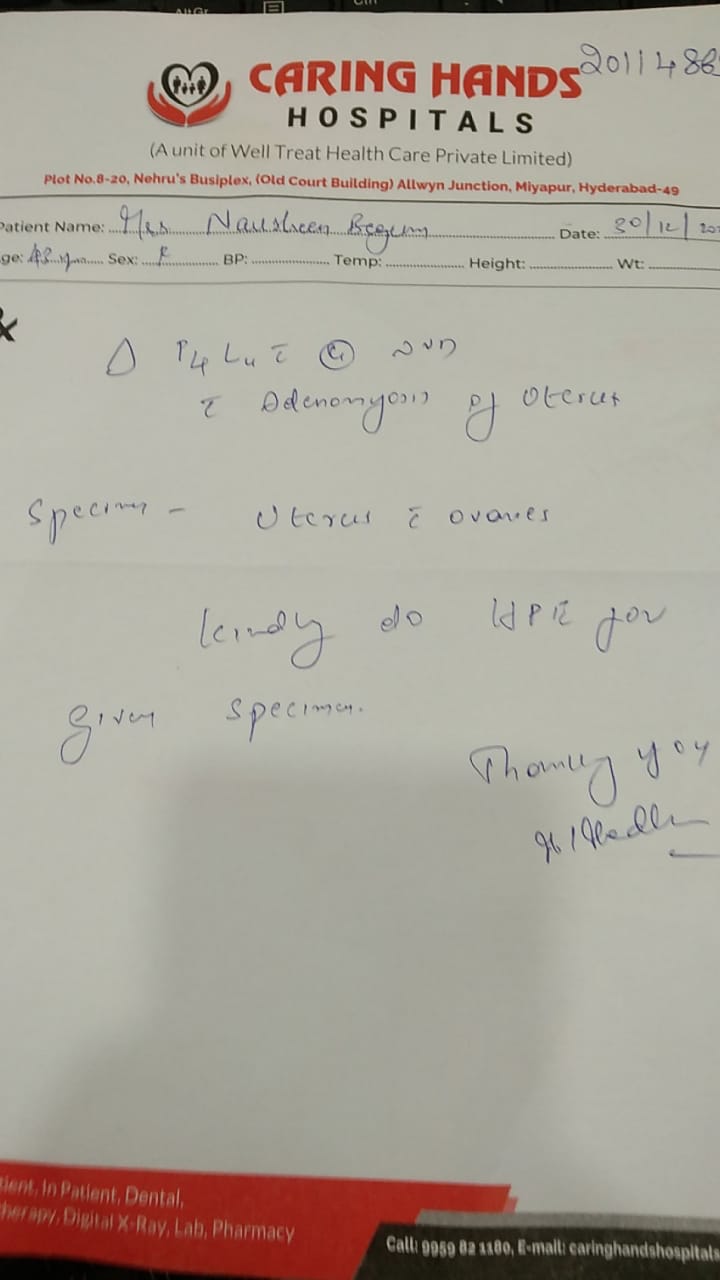 2011486
CARING HANDS
HOSPITALS
(A unit of Well Treat Health Care Private Limited)
Plot No.8-20, Nehru's Busiplex, (Old Court Building) Allwyn Junction, Miyapur, Hyderabad-49
Patient Name: Mrs Nausheen Begum Date: 30/12/20
ge: 48 yrs Sex: F BP: Temp: Height: Wt:
Δ P4 L4 c̄ NVD
c̄ Adenomyosis of Uterus
Specimen - Uterus c̄ ovaries
Kindly do HPE for
given specimen.
Thanking you
tient, In Patient, Dental,
herapy, Digital X-Ray, Lab, Pharmacy
Call: 9959 82 1180, E-mail: caringhandshospitals